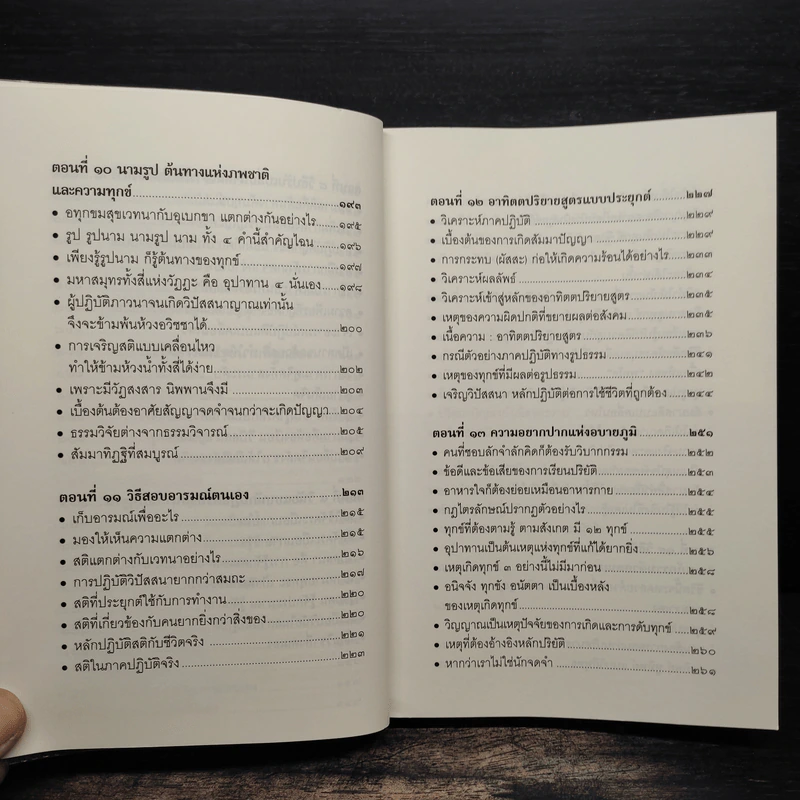 ตอนที่ ๑๐ นามรูป ต้นทางแห่งภพชาติ
และความทุกข์..........๑๙๓
• อทุกขมสุขเวทนากับอุเบกขา แตกต่างกันอย่างไร..........๑๙๕
• รูป รูปนาม นามรูป นาม ทั้ง ๔ คำนี้สำคัญไฉน..........๑๙๖
• เพียงรู้รูปนาม ก็รู้ต้นทางของทุกข์..........๑๙๗
• มหาสมุทรทั้งสี่แห่งวัฏฏะ คือ อุปาทาน ๔ นั่นเอง..........๑๙๘
• ผู้ปฏิบัติภาวนาจนเกิดวิปัสสนาญาณเท่านั้น
จึงจะข้ามพ้นห้วงอวิชชาได้..........๒๐๐
• การเจริญสติแบบเคลื่อนไหว
ทำให้ข้ามห้วงน้ำทั้งสี่ได้ง่าย..........๒๐๒
• เพราะมีวัฏสงสาร นิพพานจึงมี..........๒๐๓
• เบื้องต้นต้องอาศัยสัญญาจดจำจนกว่าจะเกิดปัญญา..........๒๐๔
• ธรรมวิจัยต่างจากธรรมวิจารณ์..........๒๐๕
• สัมมาทิฏฐิที่สมบูรณ์..........๒๐๙
ตอนที่ ๑๑ วิธีสอบอารมณ์ตนเอง..........๒๑๓
• เก็บอารมณ์เพื่ออะไร..........๒๑๕
• มองให้เห็นความแตกต่าง..........๒๑๕
• สติแตกต่างกับเวทนาอย่างไร..........๒๑๖
• การปฏิบัติวิปัสสนายากกว่าสมถะ..........๒๑๗
• สติที่ประยุกต์ใช้กับการทำงาน..........๒๒๐
• สติที่เกี่ยวข้องกับคนยากยิ่งกว่าสิ่งของ..........๒๒๐
• หลักปฏิบัติสติกับชีวิตจริง..........๒๒๑
• สติในภาคปฏิบัติจริง..........๒๒๓
ตอนที่ ๑๒ อาทิตตปริยายสูตรแบบประยุกต์..........๒๒๗
• วิเคราะห์ภาคปฏิบัติ..........๒๒๙
• เบื้องต้นของการเกิดสัมมาปัญญา..........๒๒๙
• การกระทบ (ผัสสะ) ก่อให้เกิดความร้อนได้อย่างไร..........๒๓๓
• วิเคราะห์ผลลัพธ์..........๒๓๔
• วิเคราะห์เข้าสู่หลักของอาทิตตปริยายสูตร..........๒๓๕
• เหตุของความผิดปกติที่ขยายผลต่อสังคม..........๒๓๕
• เนื้อความ : อาทิตตปริยายสูตร..........๒๓๖
• กรณีตัวอย่างภาคปฏิบัติทางรูปธรรม..........๒๔๑
• เหตุของทุกข์ที่มีผลต่อรูปธรรม..........๒๔๒
• เจริญวิปัสสนา หลักปฏิบัติต่อการใช้ชีวิตที่ถูกต้อง..........๒๔๔
ตอนที่ ๑๓ ความอยากปากแห่งอบายภูมิ..........๒๕๑
• คนที่ชอบลักจำลักคิดก็ต้องรับวิบากกรรม..........๒๕๒
• ข้อดีและข้อเสียของการเรียนปริยัติ..........๒๕๓
• อาหารใจก็ต้องย่อยเหมือนอาหารกาย..........๒๕๔
• กฎไตรลักษณ์ปรากฏตัวอย่างไร..........๒๕๕
• ทุกข์ที่ต้องตามรู้ ตามสังเกต มี ๑๒ ทุกข์..........๒๕๕
• อุปาทานเป็นต้นเหตุแห่งทุกข์ที่แก้ได้ยากยิ่ง..........๒๕๖
• เหตุเกิดทุกข์ ๓ อย่างนี้ไม่มีมาก่อน..........๒๕๘
• อนิจจัง ทุกขัง อนัตตา เป็นเบื้องหลัง
ของเหตุเกิดทุกข์..........๒๕๘
• วิญญาณเป็นเหตุปัจจัยของการเกิดและการดับทุกข์..........๒๕๙
• เหตุที่ต้องอ้างอิงหลักปริยัติ..........๒๖๐
• หากว่าเราไม่ใช่นักจดจำ..........๒๖๑